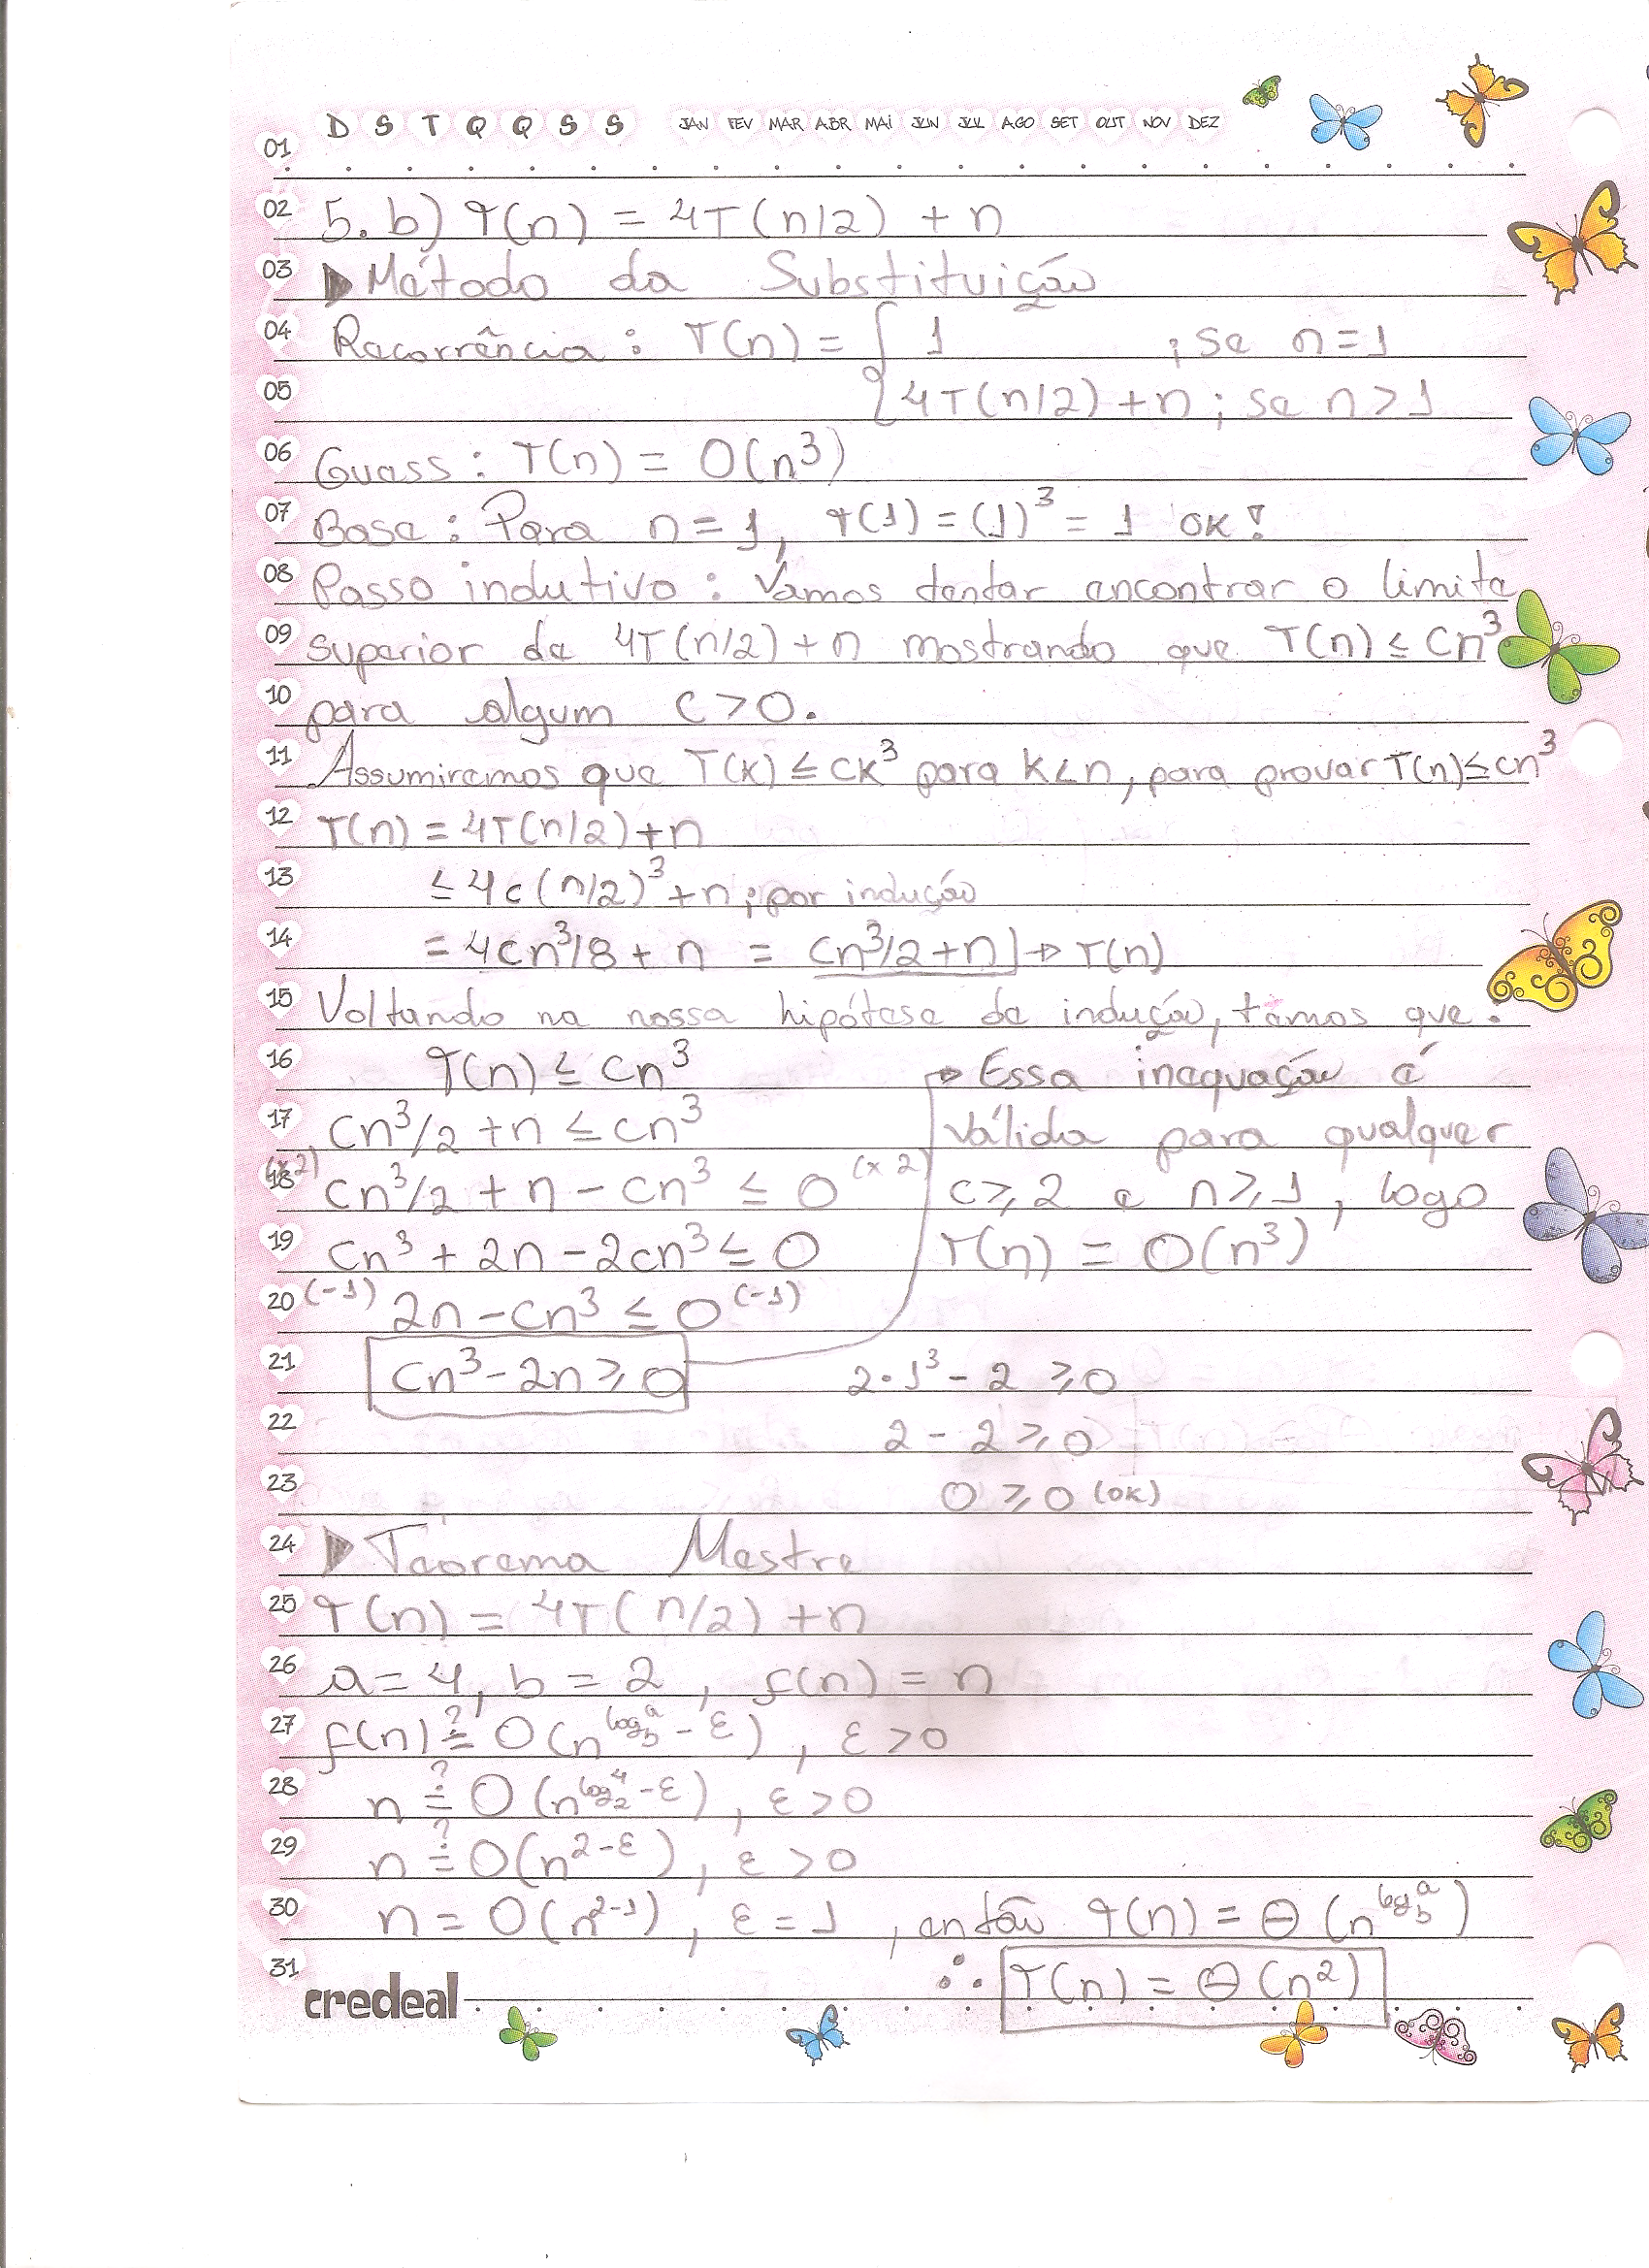 D S T Q Q S S JAN FEV MAR ABR MAI JUN JUL AGO SET OUT NOV DEZ
01
02 5. b) T(n) = 4T(n/2) + n
03 Método da Substituição
04 Recorrência: T(n) = { 1 ; se n = 1
05 4T(n/2) + n ; se n > 1
06 Guess: T(n) = O(n³)
07 Base: Para n = 1, T(1) = (1)³ = 1 OK!
08 Passo indutivo: Vamos tentar encontrar o limite
09 superior de 4T(n/2) + n mostrando que T(n) ≤ Cn³
10 para algum c > 0.
11 Assumiremos que T(k) ≤ ck³ para k < n, para provar T(n) ≤ cn³
12 T(n) = 4T(n/2) + n
13 ≤ 4c(n/2)³ + n ; por indução
14 = 4cn³/8 + n = cn³/2 + n → T(n)
15 Voltando na nossa hipótese de indução, temos que:
16 T(n) ≤ cn³ → Essa inequação é
17 cn³/2 + n ≤ cn³ válida para qualquer
18 (x2) cn³/2 + n - cn³ ≤ 0 (x2) c ≥ 2 e n ≥ 1, logo
19 cn³ + 2n - 2cn³ ≤ 0 T(n) = O(n³)
20 (-1) 2n - cn³ ≤ 0 (-1)
21 cn³ - 2n ≥ 0 2·1³ - 2 ≥ 0
22 2 - 2 ≥ 0
23 0 ≥ 0 (OK)
24 Teorema Mestre
25 T(n) = 4T(n/2) + n
26 a = 4, b = 2, f(n) = n
27 f(n) ≟ O(n^(log_b^a - ε)), ε > 0
28 n ≟ O(n^(log_2^4 - ε)), ε > 0
29 n ≟ O(n^(2-ε)), ε > 0
30 n = O(n^(2-1)), ε = 1, então T(n) = Θ(n^(log_b^a))
31 credeal ∴ T(n) = Θ(n²)